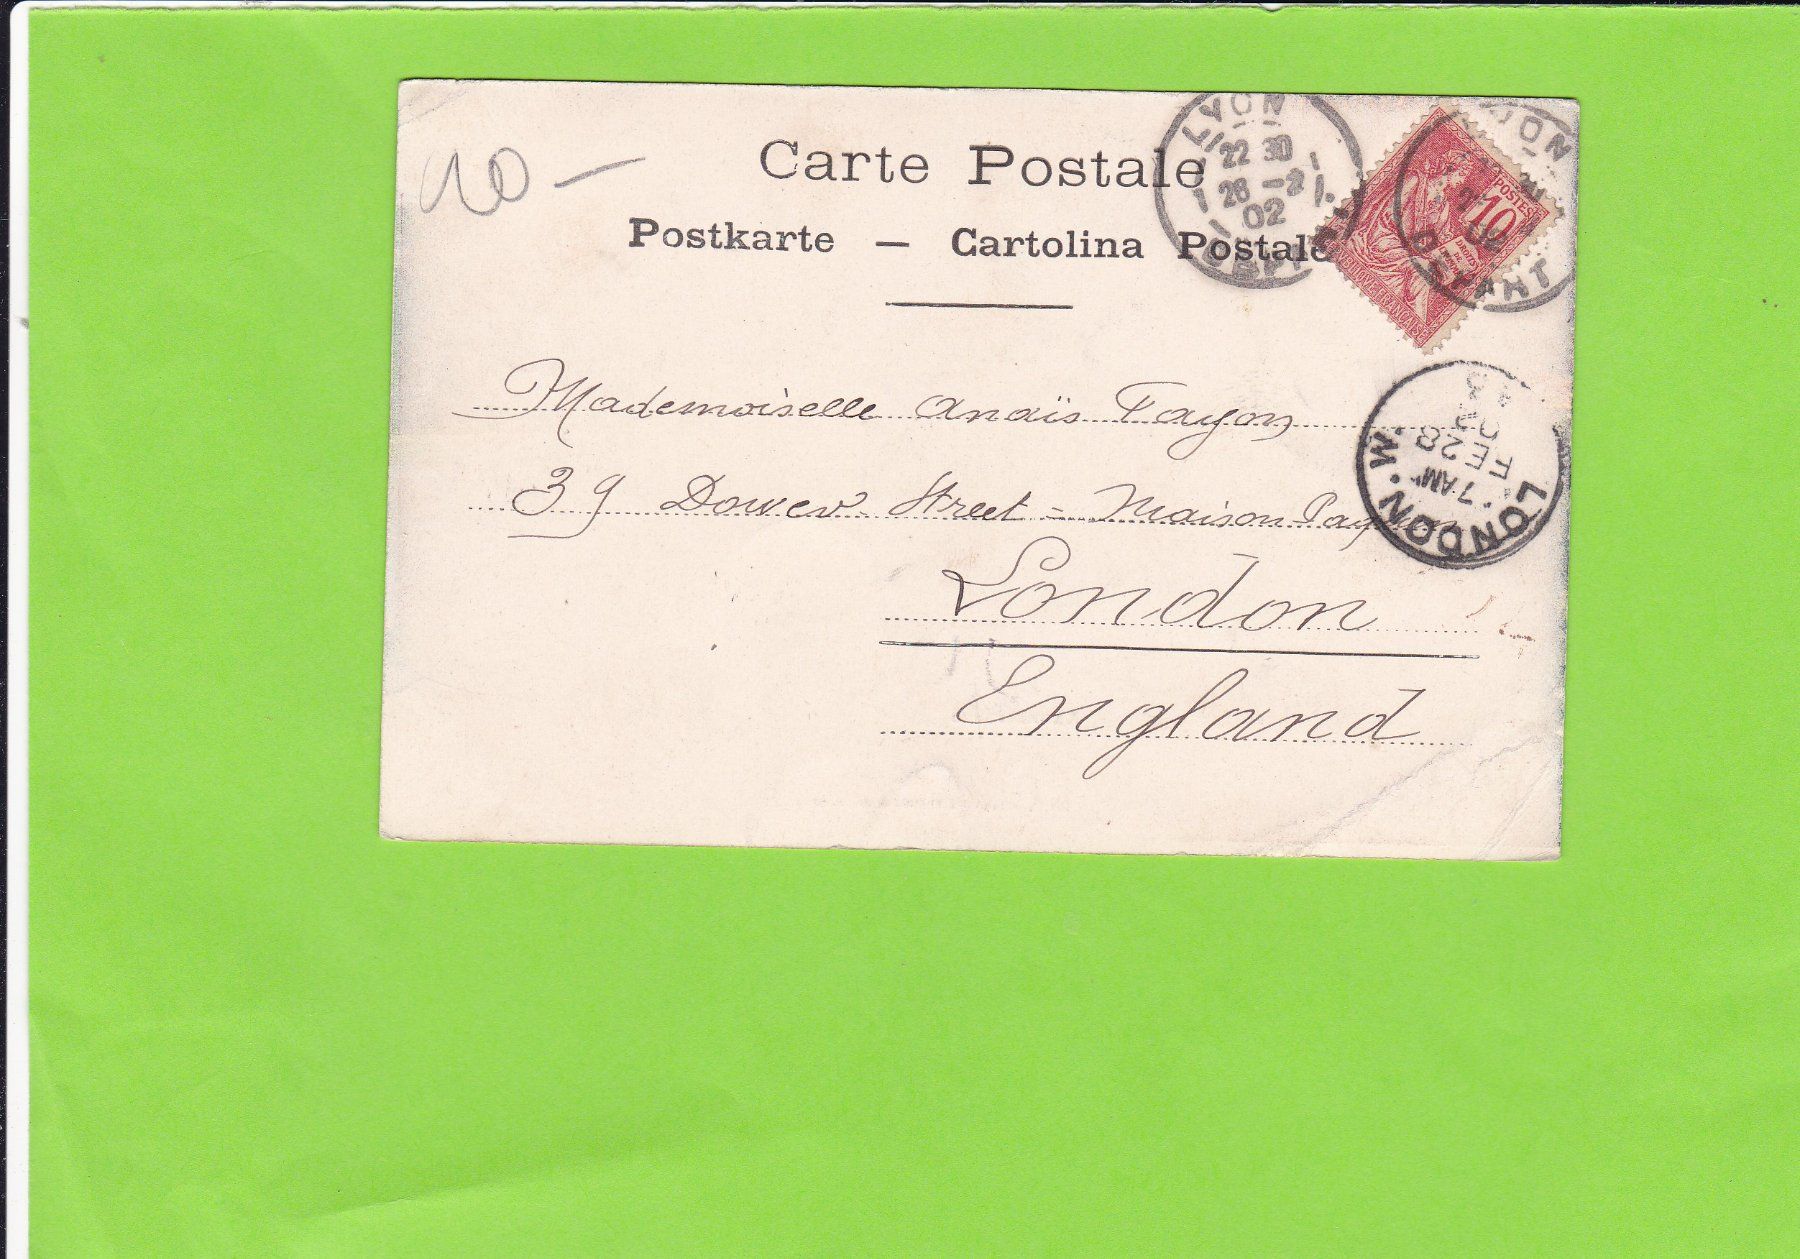 10 –
Carte Postale
Postkarte — Cartolina Postale
LYON
22 30
26 -2
02
DEPART
POSTES
10
REPUBLIQUE FRANÇAISE
DEPART
Mademoiselle Anaïs Fayon
39 Dover Street = Maison
London
England
LONDON . W.
7 AM
FE 28
02